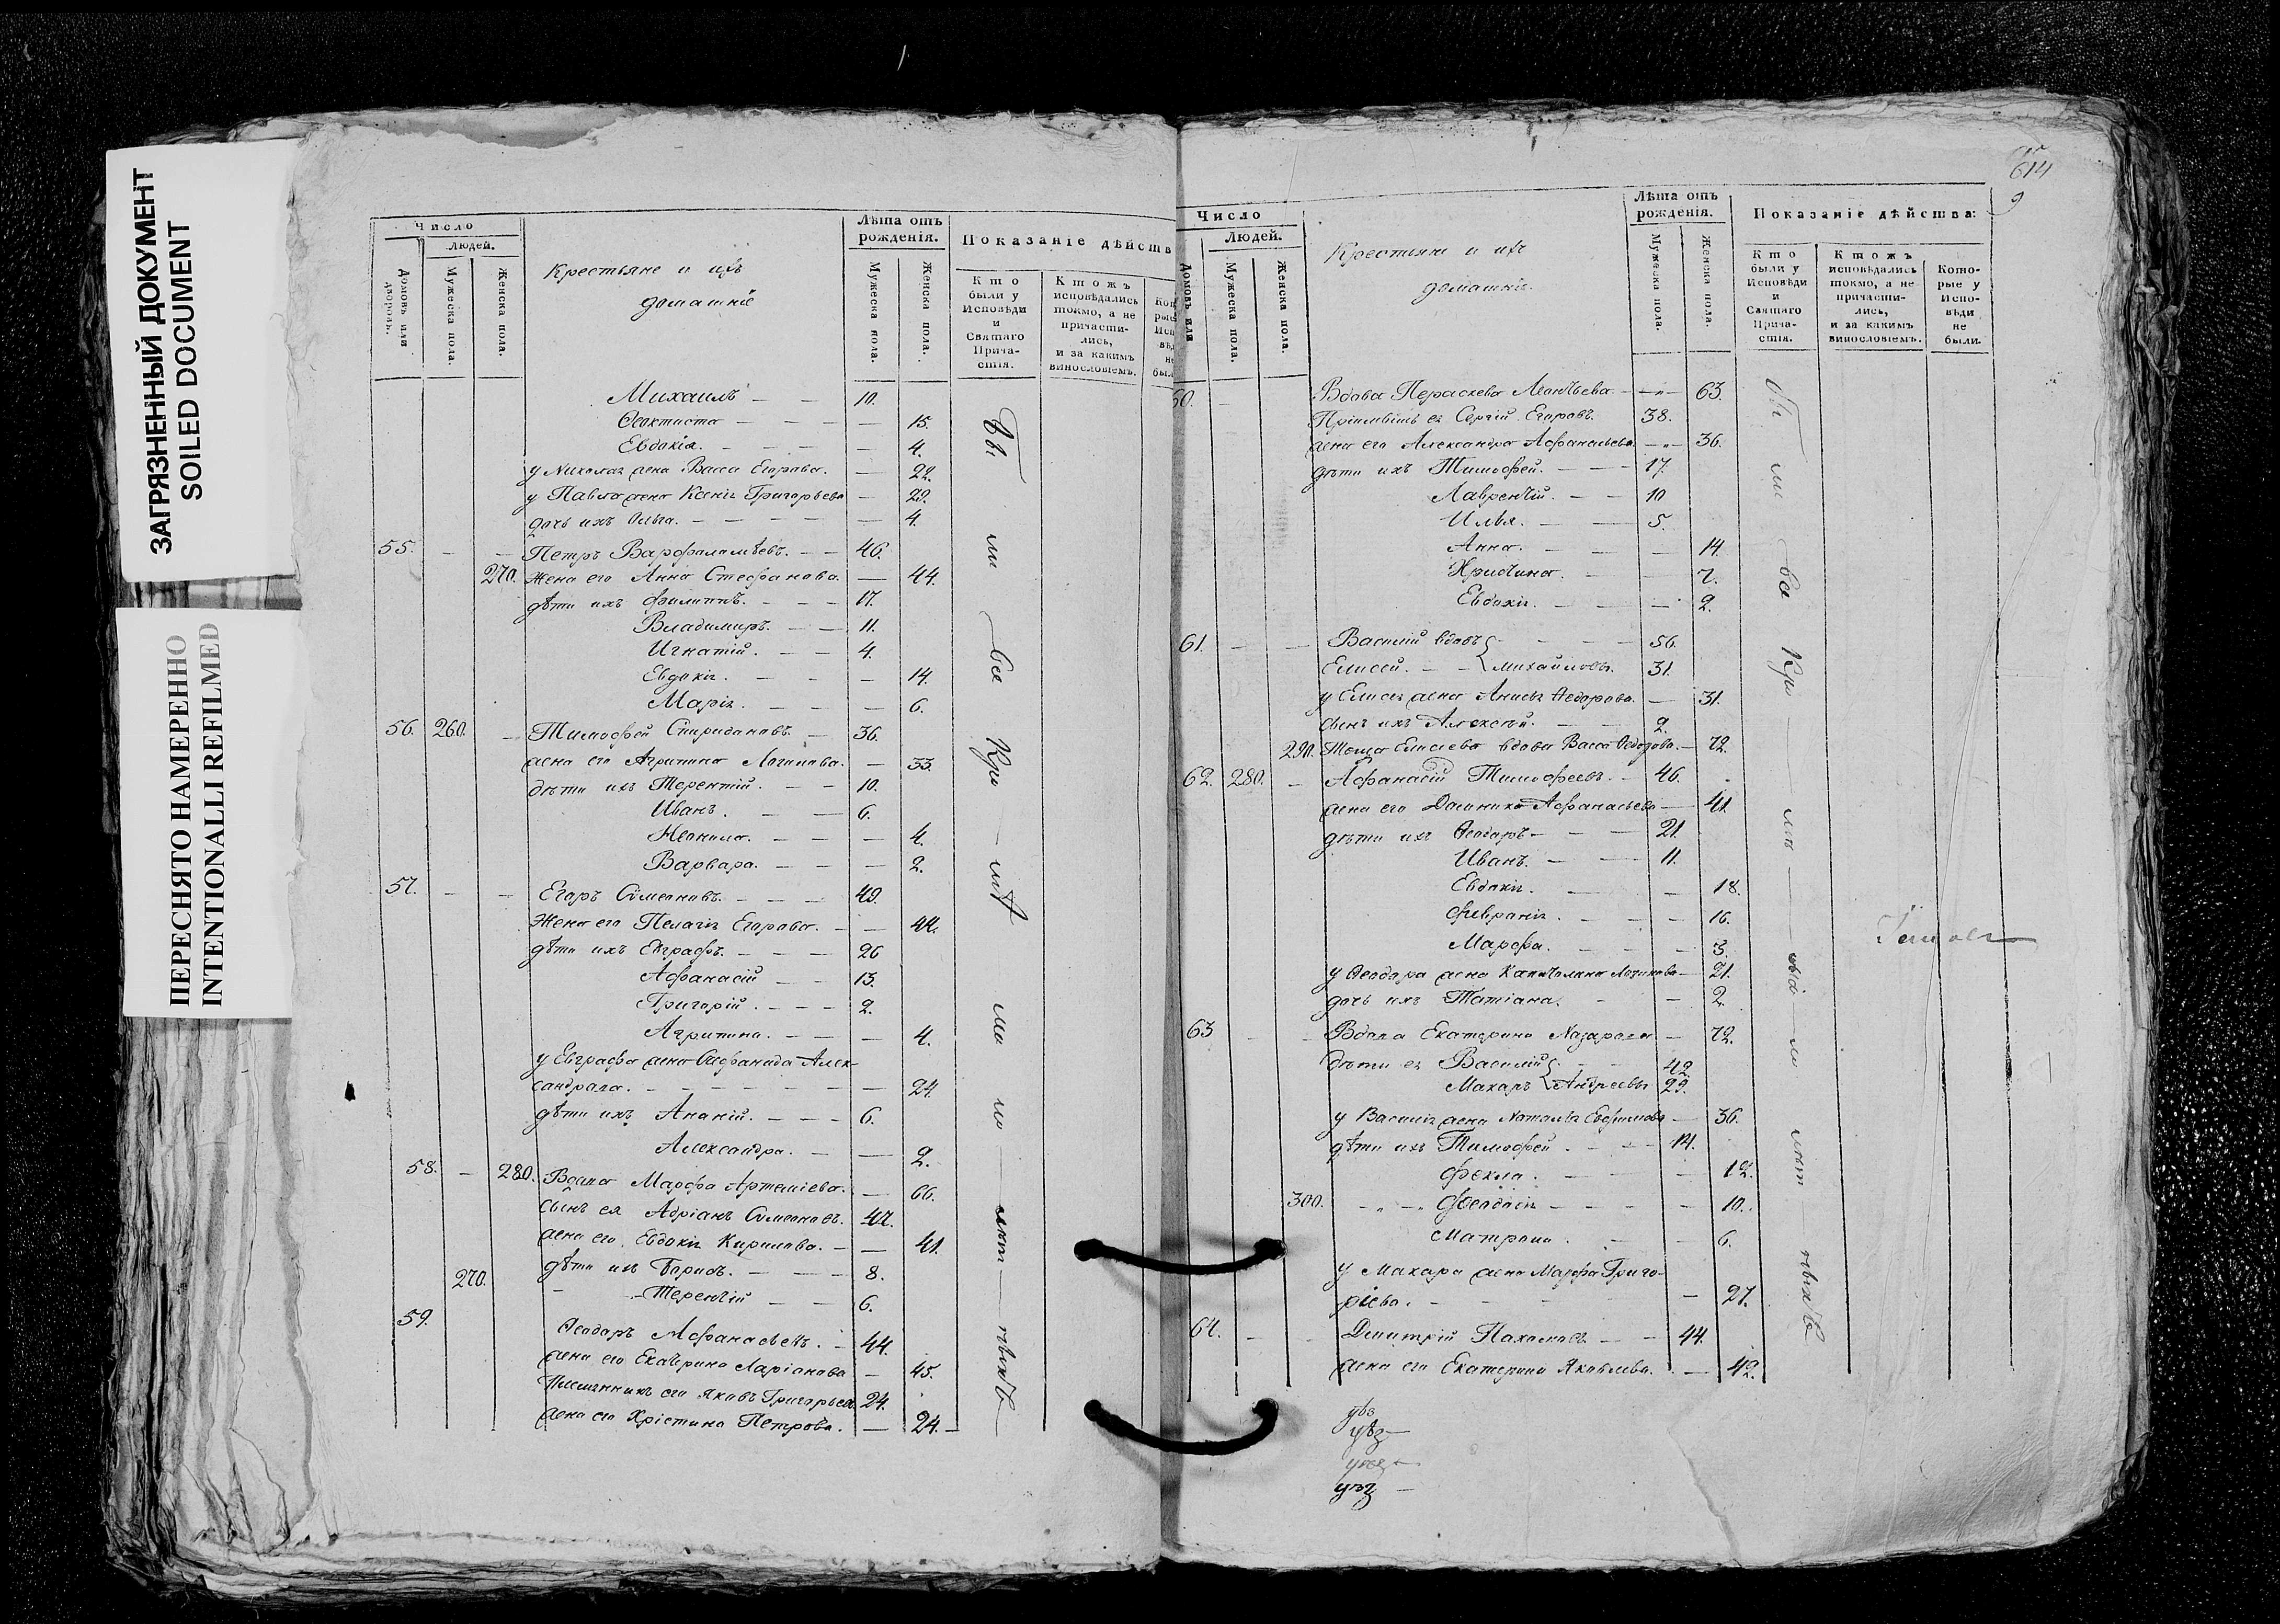 ЗАГРЯЗНЕННЫЙ ДОКУМЕНТ
SOILED DOCUMENT
ПЕРЕСНЯТО НАМЕРЕННО
INTENTIONALLI REFILMED
Число
Людей.
Домовъ или дворовъ.
Мужеска пола.
Женска пола.
Крестьяне и ихъ
домашніе
Лѣта отъ рожденія.
Мужеска пола.
Женска пола.
Показаніе дѣйств
Кто были у Исповѣди и Святаго Причастія.
Ктожъ исповѣдались токмо, а не причастились, и за какимъ винословіемъ.
Михаилъ — — 10.
Ѳеоктиста — — — — 15.
Евдокія. — — — 4.
у Николая жена Васса Егорова. — 22.
у Павла жена Ксенія Григорьева — 29.
дочь ихъ Ольга. — — — — — 4.
55. — — Петръ Варфоломѣевъ. — — 46.
270. Жена его Анна Стефанова. — 44.
дѣти ихъ Филиппъ. — — — 17.
Владимиръ. — — 11.
Игнатій. — — 4.
Евдокія. — — — 14.
Марія. — — — 6.
56. 260. — Тимофей Спиридоновъ. — 36.
жена его Агрипина Логинова. — 33.
дѣти ихъ Терентій. — — 10.
Иванъ. — — 6.
Неонила. — — — 4.
Варвара. — — — 2.
57. — — Егоръ Сѵмеоновъ. — — — 49.
Жена его Пелагія Егорова. — — 44.
дѣти ихъ Евграфъ. — — — 26
Афанасій — — 13.
Григорій. — — — 2.
Агрипина. — — — 4.
у Евграфа жена Стефанида Алек-
сандрова. — — — — — — — 24.
дѣти ихъ Ананій. — — — 6.
Александра. — — 2.
58. — 280. Вдова Марфа Артеміева. — 66.
Сынъ ея Адріанъ Сѵмеоновъ. 42.
жена его Евдокія Кирилова. — — 41.
дѣти ихъ Борисъ. — — — 8.
270. Терентій — — 6.
59.
Ѳеодоръ Афанасьевъ. — 44.
жена его Екатерина Ларіонова — 45.
Племянникъ его Яковъ Григорьевъ 24.
жена его Христина Петрова. — 24. —
614
9
Число
Людей.
Домовъ или
Мужеска пола.
Женска пола.
Крестьяне и ихъ
домашніе.
Лѣта отъ рожденія.
Мужеска пола.
Женска пола.
Показаніе дѣйства:
Кто были у Исповѣди и Святаго Причастія.
Ктожъ исповѣдались токмо, а не причастились, и за какимъ винословіемъ.
Которые у Исповѣди не были.
60. — Вдова Пераскева Леонтьева — — 63.
Пріимышъ ея Сергій Егоровъ. 38.
жена его Александра Афанасьева — 36.
дѣти ихъ Тимофей. — — — 17.
Лаврентій. — — 10
Илья. — — 5.
Анна. — — — 14.
Христина. — — 7.
Евдокія. — — — 2.
61. — — Василій вдовъ — — — 56.
Елисей. — — Михайловы. 31.
у Елисея жена Анисья Ѳедорова. — 31.
сынъ ихъ Алексѣй. — — 2.
290. Теща Елисеева вдова Васса — 72.
62. 280. — Афанасій Тимофеевъ. — 46.
жена его Домника Афанасьева — 41.
дѣти ихъ Ѳеодоръ — — — 21.
Иванъ. — — — 11.
Евдокія. — — 18.
Февронія. — — — 16.
Марфа. — — — 3.
у Ѳеодора жена Капитолина Логинова — 21.
дочь ихъ Татіана. — — 2.
63 — Вдова Екатерина Назарова — 72.
дѣти ея Василій — — 42.
Макаръ Андреевы 29.
у Василія жена Наталья Евфимова — 36.
дѣти ихъ Тимофей. — — — 14.
Фекла. — — — 12.
300. — „ — Феодосія — — — — 10.
Матрона. — — 6.
у Макара жена Марфа Григо-
рьева. — — — — 27.
64. — — Дмитрій Пахомовъ — — 44.
жена его Екатерина Яковлева. — 42.